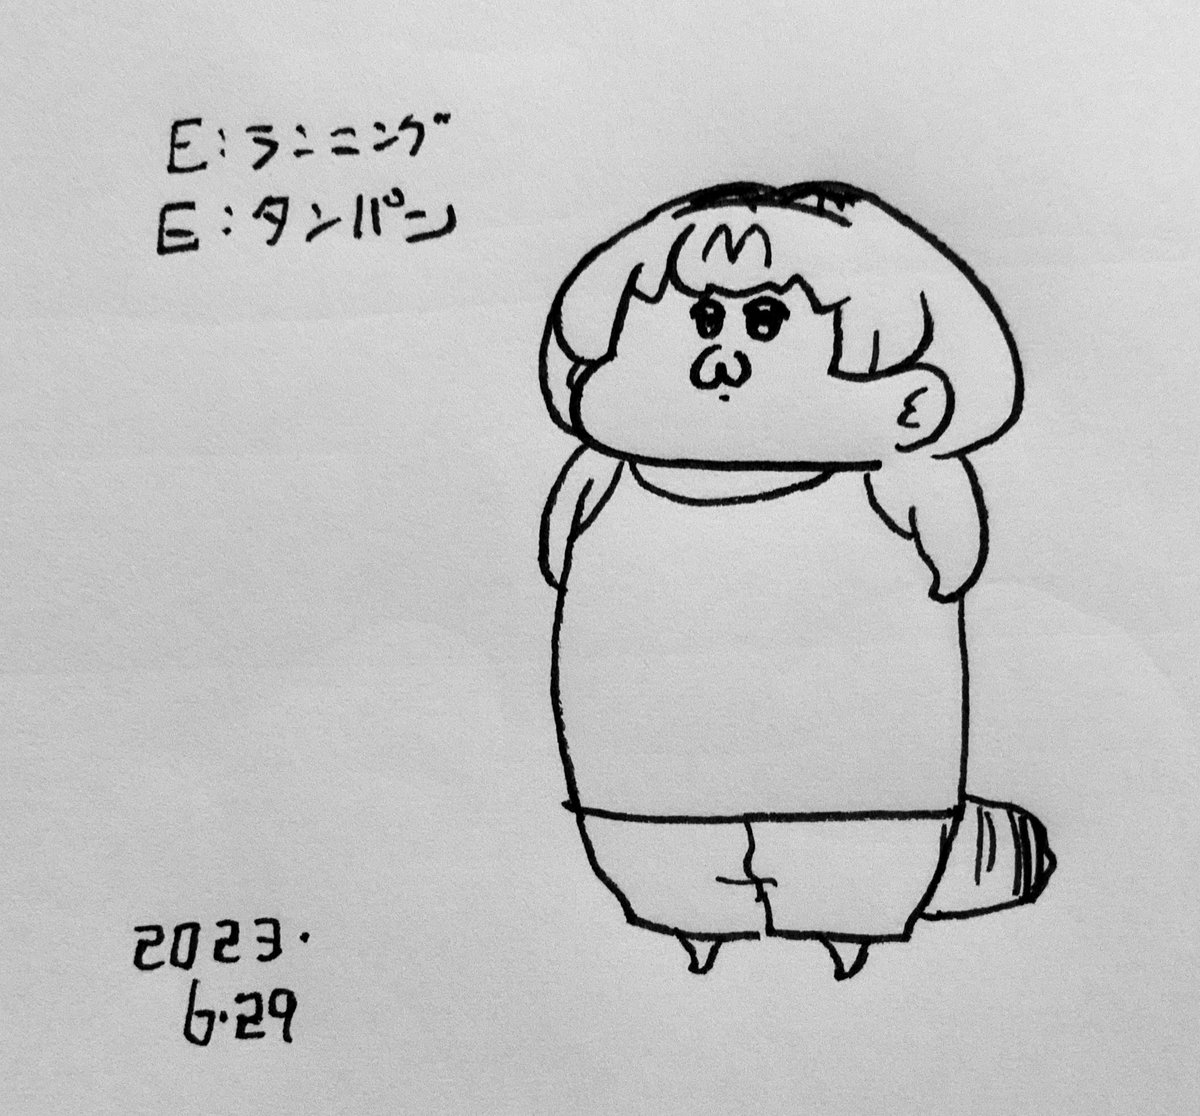 E:ランニング
E:タンパン
2023.
6.29